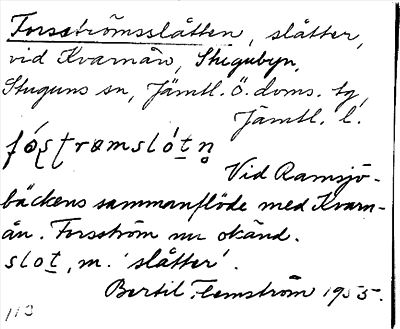 Forsströmsslåtten, slåtter,
vid Kvarnån, Stugubyn,
Stuguns sn, Jämtl. ö. doms. tg,
Jämtl. l.
Vid Ramsjö-
bäckens sammanflöde med Kvarn-
ån. Forsström nu okänd.
slot, m. 'slåtter'.
Bertil Flemström 1955.
113